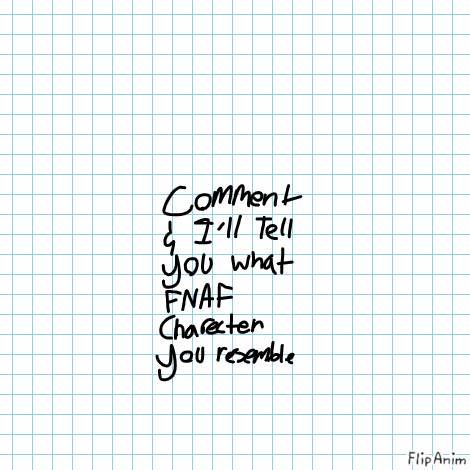 Comment
& I'll Tell
you what
FNAF
Charecter
you resemble
FlipAnim